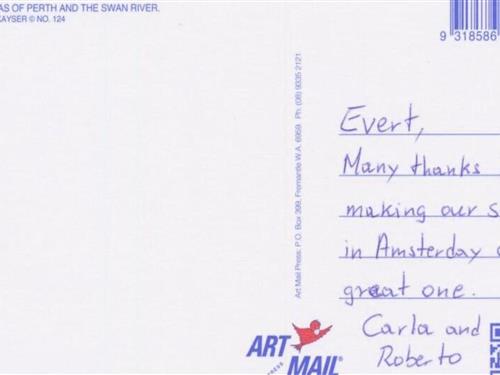 AS OF PERTH AND THE SWAN RIVER.
KAYSER © NO. 124
9 318586
Art Mail Press: P.O. Box 399, Fremantle W.A. 6959 Ph: (08) 9335 2121
Evert,
Many thanks
making our s
in Amsterday
great one.
Carla and
Roberto
ART
MAIL®
PRESS